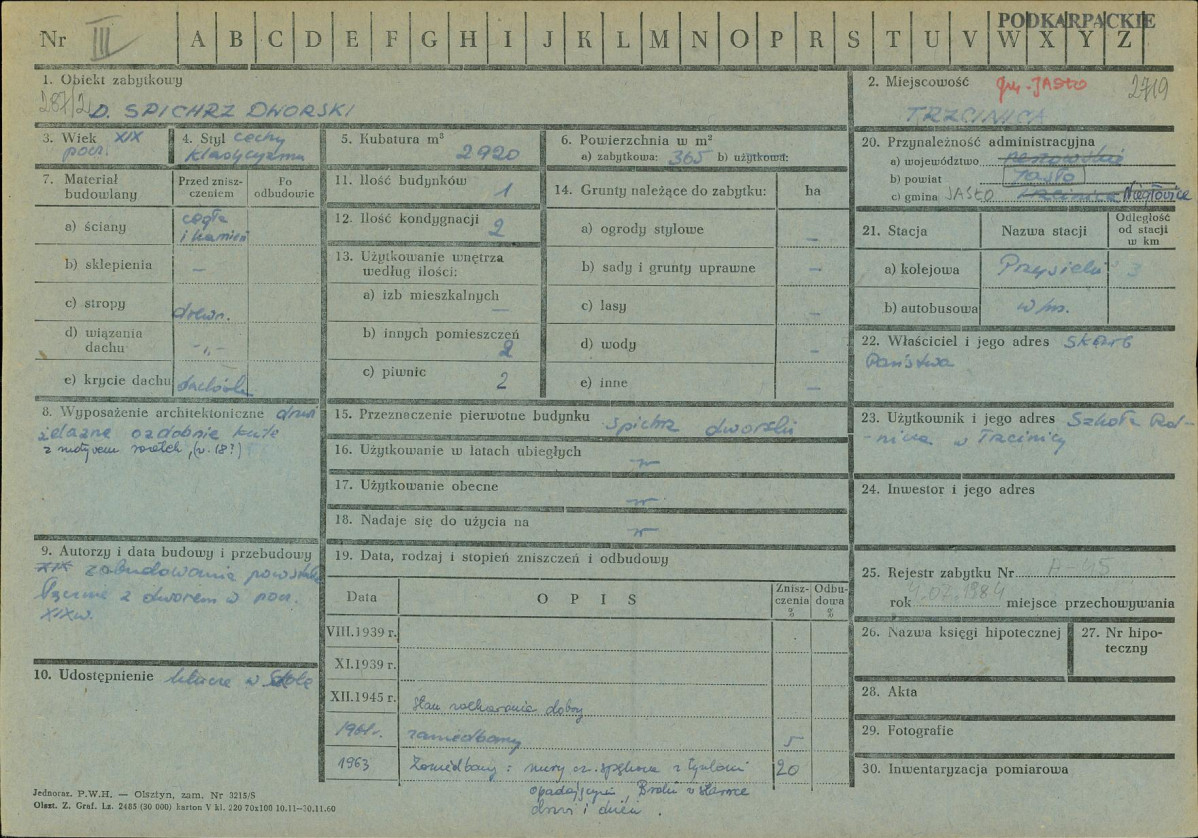 PODKARPACKIE
Nr III A B C D E F G H I J K L M N O P R S T U V W X Y Z
1. Obiekt zabytkowy
D. SPICHRZ DWORSKI
2. Miejscowość gm. JASŁO 2719
TRZCINICA
3. Wiek XIX
pocz.
4. Styl cechy
klasycyzmu
5. Kubatura m³
2920
6. Powierzchnia w m²
a) zabytkowa: 365 b) użytkowa:
7. Materiał
budowlany
Przed znisz-
czeniem
Po
odbudowie
a) ściany cegła
i kamień
b) sklepienia –
c) stropy drewn.
d) wiązania
dachu -„-
e) krycie dachu dachówka
8. Wyposażenie architektoniczne drzwi
żelazne ozdobnie kute
z motywem rozetek, (w. 18?)
9. Autorzy i data budowy i przebudowy
XIX zabudowania powstałe
łącznie z dworem w pocz.
XIX w.
10. Udostępnienie klucze w szkole
11. Ilość budynków 1
12. Ilość kondygnacji 2
13. Użytkowanie wnętrza
według ilości:
a) izb mieszkalnych –
b) innych pomieszczeń 2
c) piwnic 2
14. Grunty należące do zabytku: ha
a) ogrody stylowe –
b) sady i grunty uprawne –
c) lasy –
d) wody –
e) inne –
15. Przeznaczenie pierwotne budynku spichrz dworski
16. Użytkowanie w latach ubiegłych
17. Użytkowanie obecne
18. Nadaje się do użycia na
19. Data, rodzaj i stopień zniszczeń i odbudowy
Data O P I S Znisz-
czenia
%
Odbu-
dowa
%
VIII.1939 r.
XI.1939 r.
XII.1945 r. stan zachowania dobry
1961r. zaniedbany 5
1963 Zaniedbany: mury cz. spękane z tynkami 20
opadającymi, Braki w stolarce
drzwi i okien.
20. Przynależność administracyjna
a) województwo rzeszowskie
b) powiat Jasło
c) gmina JASŁO Trzcinica Niegłowice
21. Stacja Nazwa stacji Odległość
od stacji
w km
a) kolejowa Przysieki 3
b) autobusowa w/m.
22. Właściciel i jego adres Skarb
Państwa
23. Użytkownik i jego adres Szkoła Rol-
nicza w Trzcinicy
24. Inwestor i jego adres
25. Rejestr zabytku Nr A-45
rok 4.07.1984 miejsce przechowywania
26. Nazwa księgi hipotecznej
27. Nr hipo-
teczny
28. Akta
29. Fotografie
30. Inwentaryzacja pomiarowa
Jednoraz. P.W.H. — Olsztyn, zam. Nr 3215/S
Olszt. Z. Graf. Lz. 2485 (30 000) karton V kl. 220 70x100 10.11–30.11.60